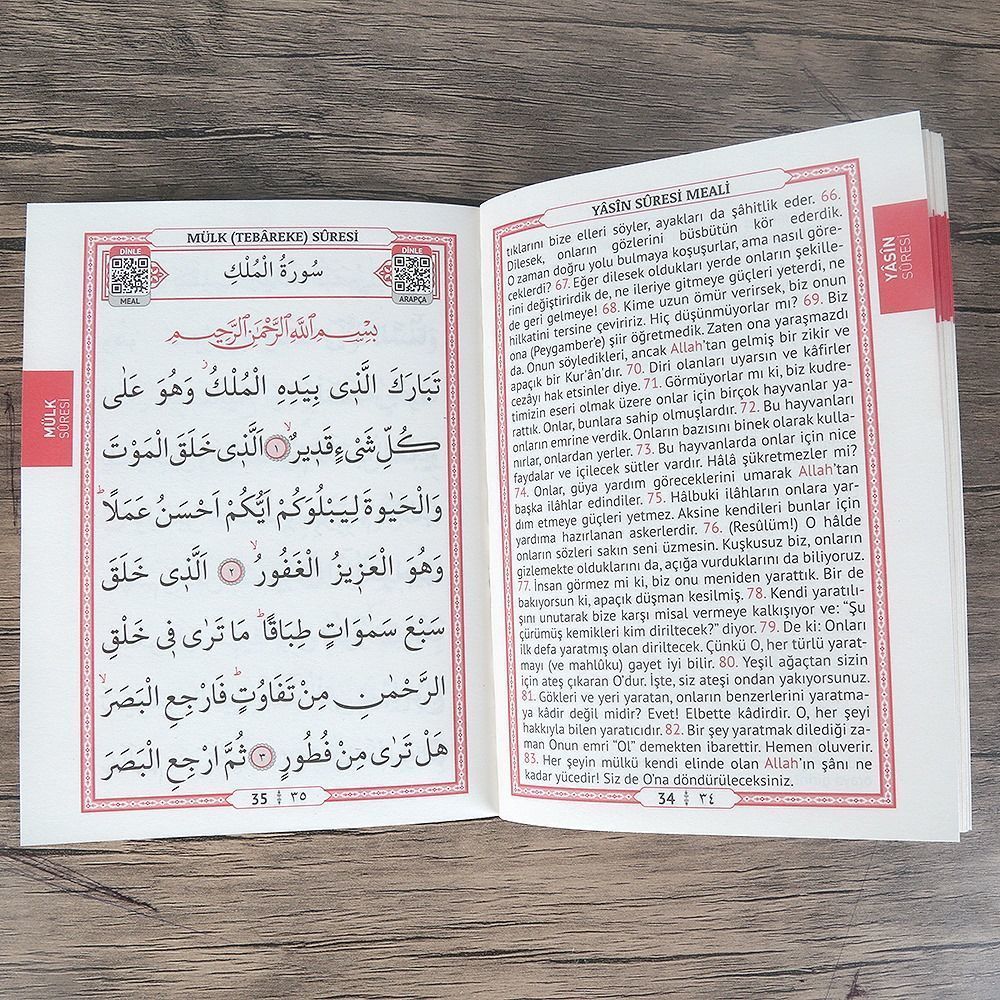 YÂSÎN SÛRESİ MEALİ
tıklarını bize elleri söyler, ayakları da şâhitlik eder. 66.
Dilesek, onların gözlerini büsbütün kör ederdik.
O zaman doğru yolu bulmaya koşuşurlar, ama nasıl göre-
ceklerdi? 67. Eğer dilesek oldukları yerde onların şekille-
rini değiştirirdik de, ne ileriye gitmeye güçleri yeterdi, ne
de geri gelmeye! 68. Kime uzun ömür verirsek, biz onun
hilkatini tersine çeviririz. Hiç düşünmüyorlar mı? 69. Biz
ona (Peygamber'e) şiir öğretmedik. Zaten ona yaraşmazdı
da. Onun söyledikleri, ancak Allah'tan gelmiş bir zikir ve
apaçık bir Kur'ân'dır. 70. Diri olanları uyarsın ve kâfirler
cezâyı hak etsinler diye. 71. Görmüyorlar mı ki, biz kudre-
timizin eseri olmak üzere onlar için birçok hayvanlar ya-
rattık. Onlar, bunlara sahip olmuşlardır. 72. Bu hayvanları
onların emrine verdik. Onların bazısını binek olarak kulla-
nırlar, onlardan yerler. 73. Bu hayvanlarda onlar için nice
faydalar ve içilecek sütler vardır. Hâlâ şükretmezler mi?
74. Onlar, güya yardım göreceklerini umarak Allah'tan
başka ilâhlar edindiler. 75. Hâlbuki ilâhların onlara yar-
dım etmeye güçleri yetmez. Aksine kendileri bunlar için
yardıma hazırlanan askerlerdir. 76. (Resûlüm!) O hâlde
onların sözleri sakın seni üzmesin. Kuşkusuz biz, onların
gizlemekte olduklarını da, açığa vurduklarını da biliyoruz.
77. İnsan görmez mi ki, biz onu meniden yarattık. Bir de
bakıyorsun ki, apaçık düşman kesilmiş. 78. Kendi yaratılı-
şını unutarak bize karşı misal vermeye kalkışıyor ve: "Şu
çürümüş kemikleri kim diriltecek?" diyor. 79. De ki: Onları
ilk defa yaratmış olan diriltecek. Çünkü O, her türlü yarat-
mayı (ve mahlûku) gayet iyi bilir. 80. Yeşil ağaçtan sizin
için ateş çıkaran O'dur. İşte, siz ateşi ondan yakıyorsunuz.
81. Gökleri ve yeri yaratan, onların benzerlerini yaratma-
ya kâdir değil midir? Evet! Elbette kâdirdir. O, her şeyi
hakkıyla bilen yaratıcıdır. 82. Bir şey yaratmak dilediği za-
man Onun emri "Ol" demekten ibarettir. Hemen oluverir.
83. Her şeyin mülkü kendi elinde olan Allah'ın şânı ne
kadar yücedir! Siz de O'na döndürüleceksiniz.
34 ٣٤
YÂSÎN
SÛRESİ
MÜLK (TEBÂREKE) SÛRESİ
DİNLE
MEAL
سُورَةُ الْمُلْكِ
DİNLE
ARAPÇA
بِسْمِ اللّٰهِ الرَّحْمٰنِ الرَّحِيمِ
تَبَارَكَ الَّذٖى بِيَدِهِ الْمُلْكُ ۙ وَهُوَ عَلٰى
كُلِّ شَىْءٍ قَدٖيرٌ ۙ ﴿١﴾ اَلَّذٖى خَلَقَ الْمَوْتَ
وَالْحَيٰوةَ لِيَبْلُوَكُمْ اَيُّكُمْ اَحْسَنُ عَمَلًا ؕ
وَهُوَ الْعَزٖيزُ الْغَفُورُ ۙ ﴿٢﴾ اَلَّذٖى خَلَقَ
سَبْعَ سَمٰوَاتٍ طِبَاقًا ؕ مَا تَرٰى فٖى خَلْقِ
الرَّحْمٰنِ مِنْ تَفَاوُتٍ ؕ فَارْجِعِ الْبَصَرَ ۙ
هَلْ تَرٰى مِنْ فُطُورٍ ﴿٣﴾ ثُمَّ ارْجِعِ الْبَصَرَ
35 ٣٥
MÜLK
SÛRESİ